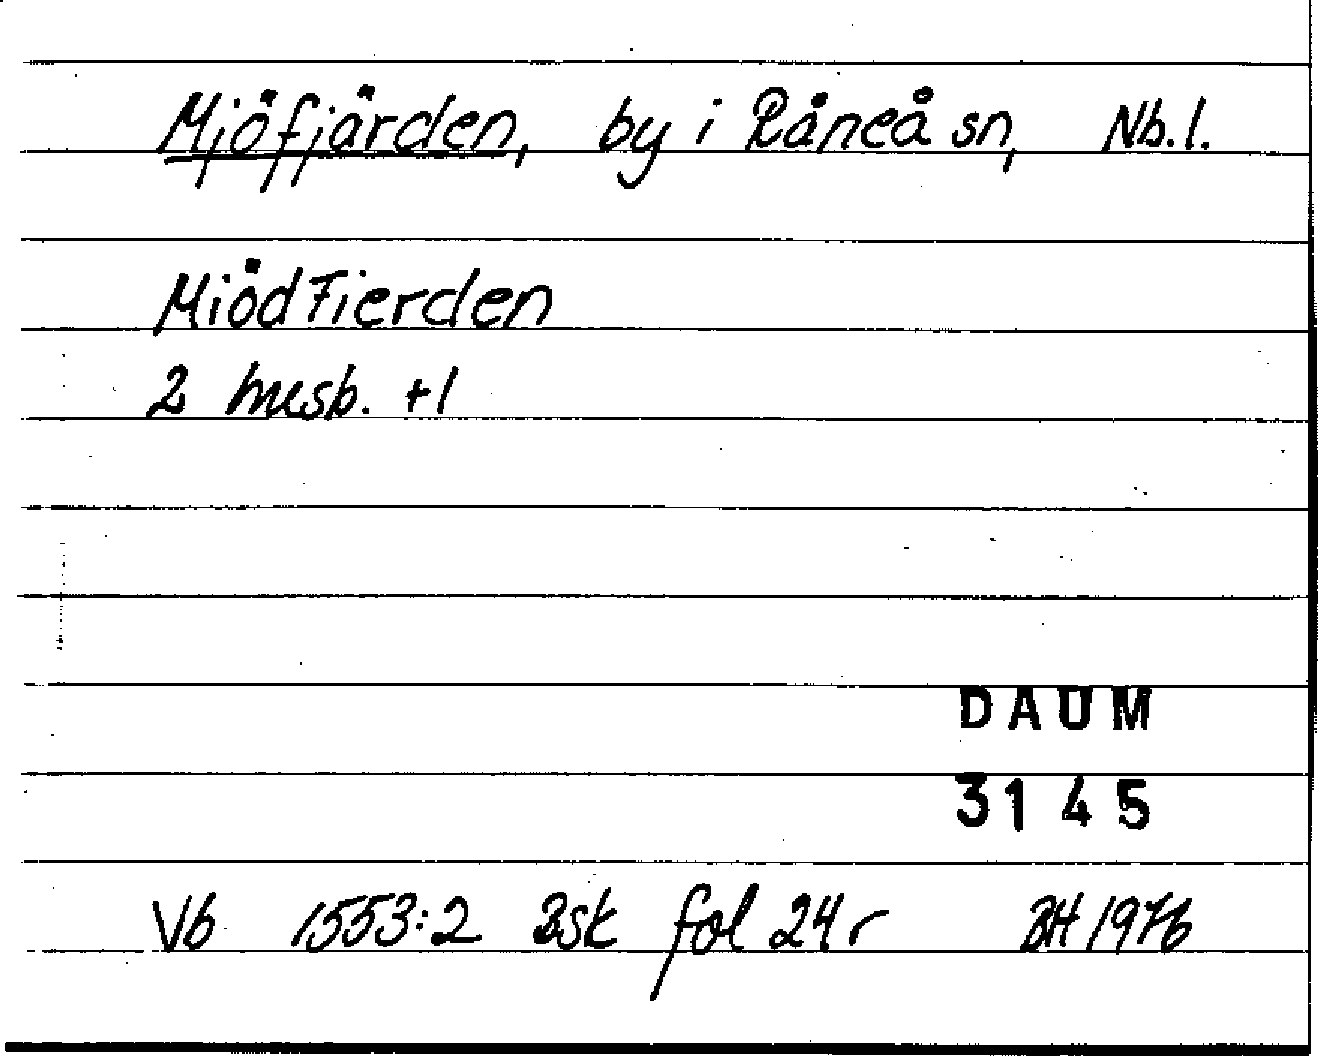 Mjöfjärden, by i Råneå sn, Nb.l.
Miödfierden
2 husb. +1
DAUM
3145
Vb 1553:2 Bsk fol 24 r BH 1976